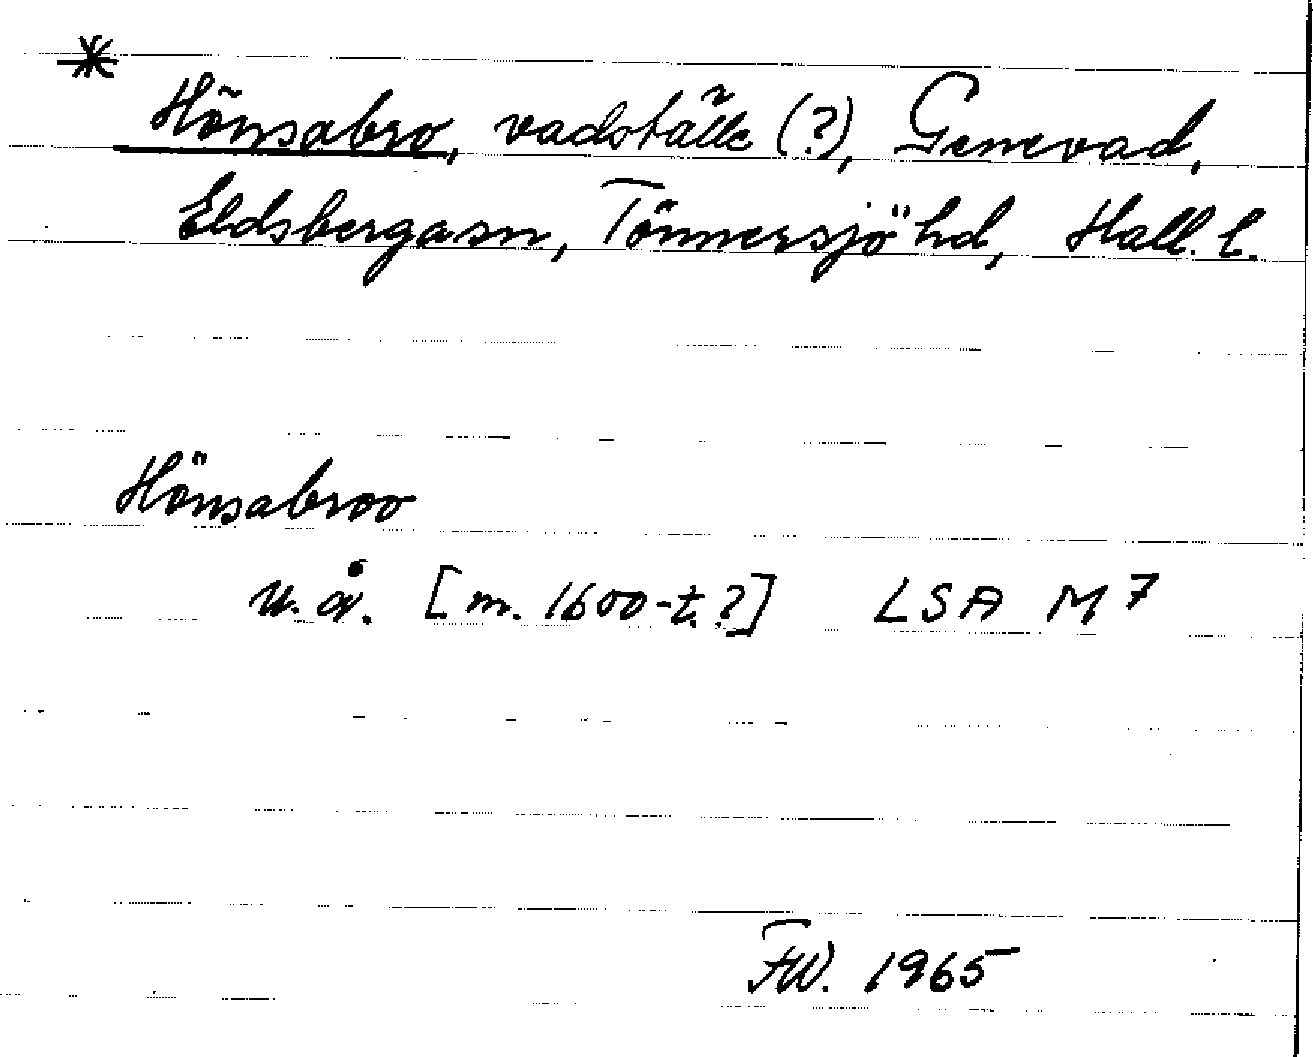 *
Hönsabro, vadställe (?), Genevad,
Eldsbergasn, Tönnersjö hd, Hall. l.
Hönsabroo
u.å. [m. 1600-t.?] LSA M 7
FW. 1965